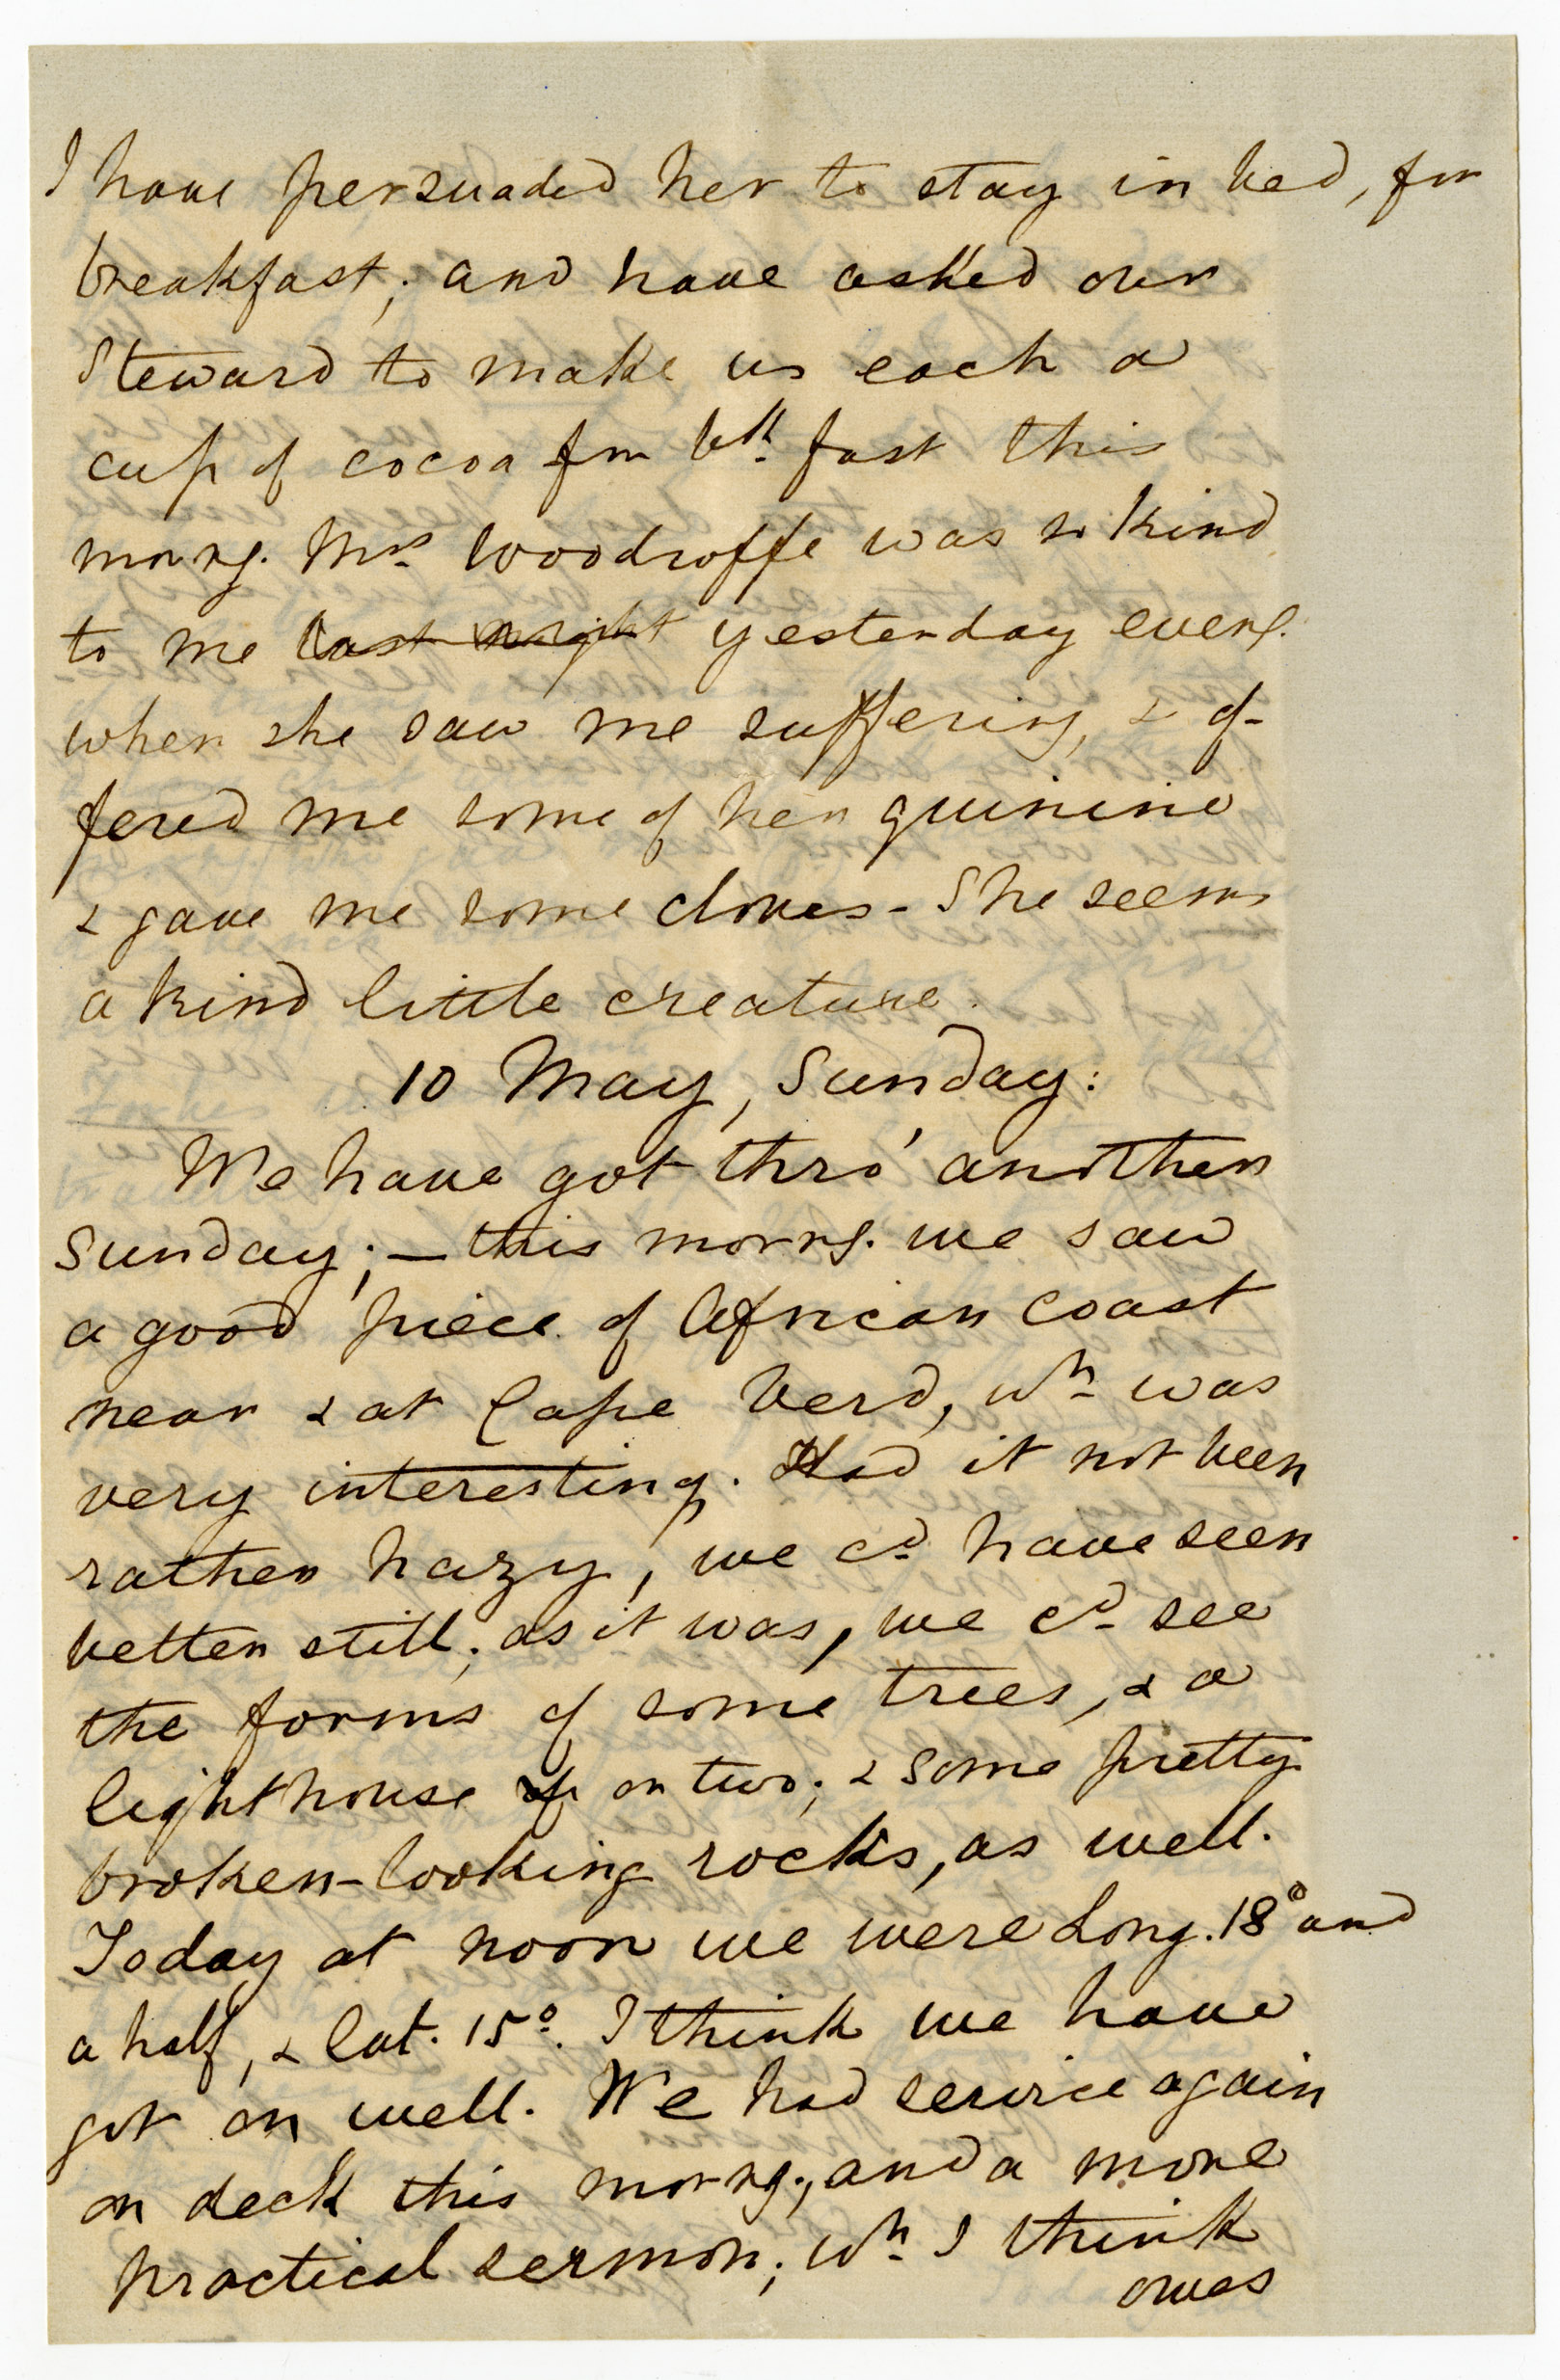 I have persuaded her to stay in bed, for
breakfast; and have asked our
Steward to make us each a
cup of cocoa for bk. fast this
morng. Mrs. Woodroffe was so kind
to me last night yesterday eveng.
when she saw me suffering, & of-
fered me some of her quinine
& gave me some cloves - She seems
a kind little creature.
10 May, Sunday:
We have got thro' another
Sunday; — this morng. we saw
a good piece of African coast
near & at Cape Verd, wh. was
very interesting. Had it not been
rather hazy, we cd. have seen
better still; as it was, we cd. see
the forms of some trees, & a
lighthouse or two; & some pretty
broken-looking rocks, as well.
Today at noon we were Long. 18° and
a half, & lat. 15°. I think we have
got on well. We had service again
on deck this morng; and a more
practical sermon; wh. I think
owes